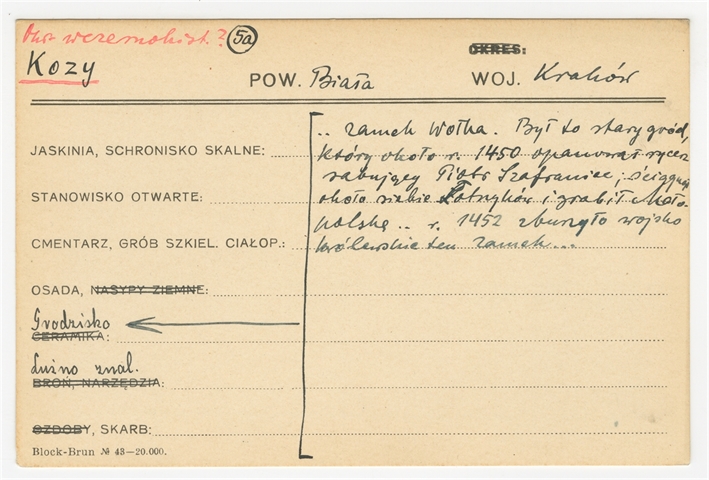 Okr. wczesnohist.? 5a
OKRES:
Kozy
POW. Biała
WOJ. Kraków
.. zamek Wołka. Był to stary gród,
JASKINIA, SCHRONISKO SKALNE:
który około r. 1450 opanował rycerz
rabujący Piotr Szafraniec, ściągnął
STANOWISKO OTWARTE:
około siebie Łotrzyków i grabił Mało-
polskę .. r. 1452 zburzyło wojsko
CMENTARZ, GRÓB SZKIEL. CIAŁOP.:
królewskie ten zamek...
OSADA, NASYPY ZIEMNE:
Grodzisko
CERAMIKA:
Luźno znal.
BROŃ, NARZĘDZIA:
OZDOBY, SKARB:
Block-Brun № 43—20.000.